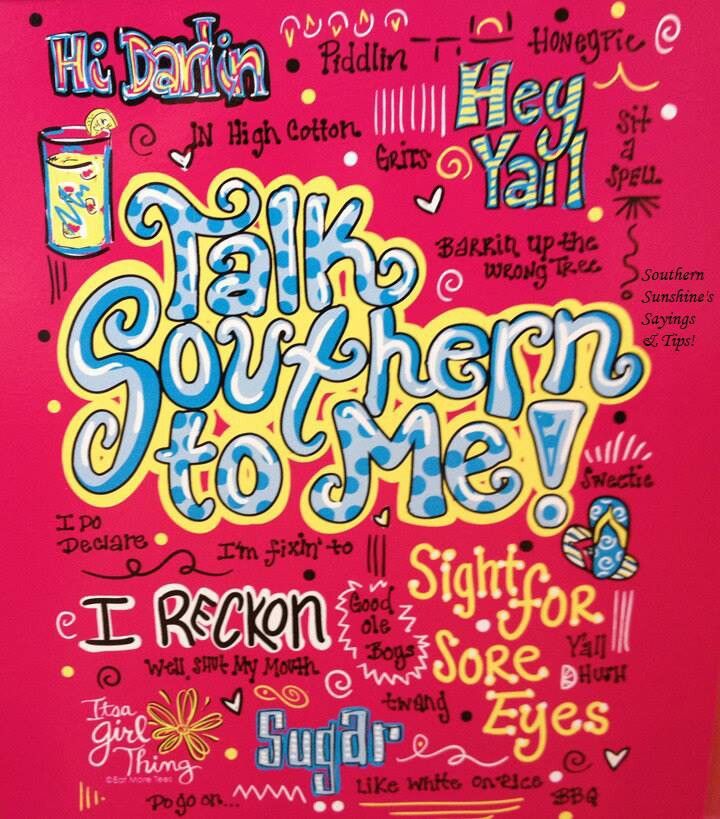 Hi Darlin
Piddlin
Honeypie
IN High Cotton
Grits
Hey
Yall
Sit
a
SPELL
Barkin up the
wrong Tree
Southern
Sunshine's
Sayings
& Tips!
Talk
Southern
to Me!
Sweetie
I DO
Declare
I'm fixin' to
I RECKON
Good
ole
Boys
Sight
for
SORE
Eyes
Y'all
Hush
Well, Shut My Mouth
twang
Itsa
girl
Thing
©Eat More Tees
Sugar
Like White On Rice
BBQ
Do go on...